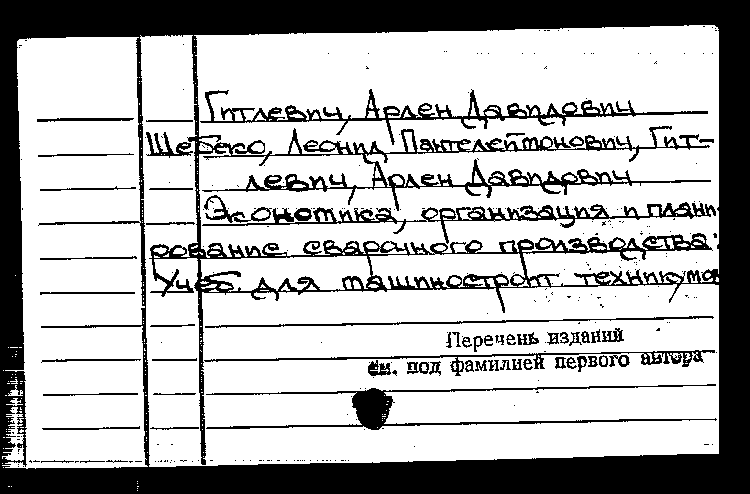 Гитлевич, Арлен Давидович
Щебеко, Леонид Пантелеймонович, Гит-
левич, Арлен Давидович
Экономика, организация и плани
рование сварочного производства:
Учеб. для машиностроит. техникумов
Перечень изданий
см. под фамилией первого автора